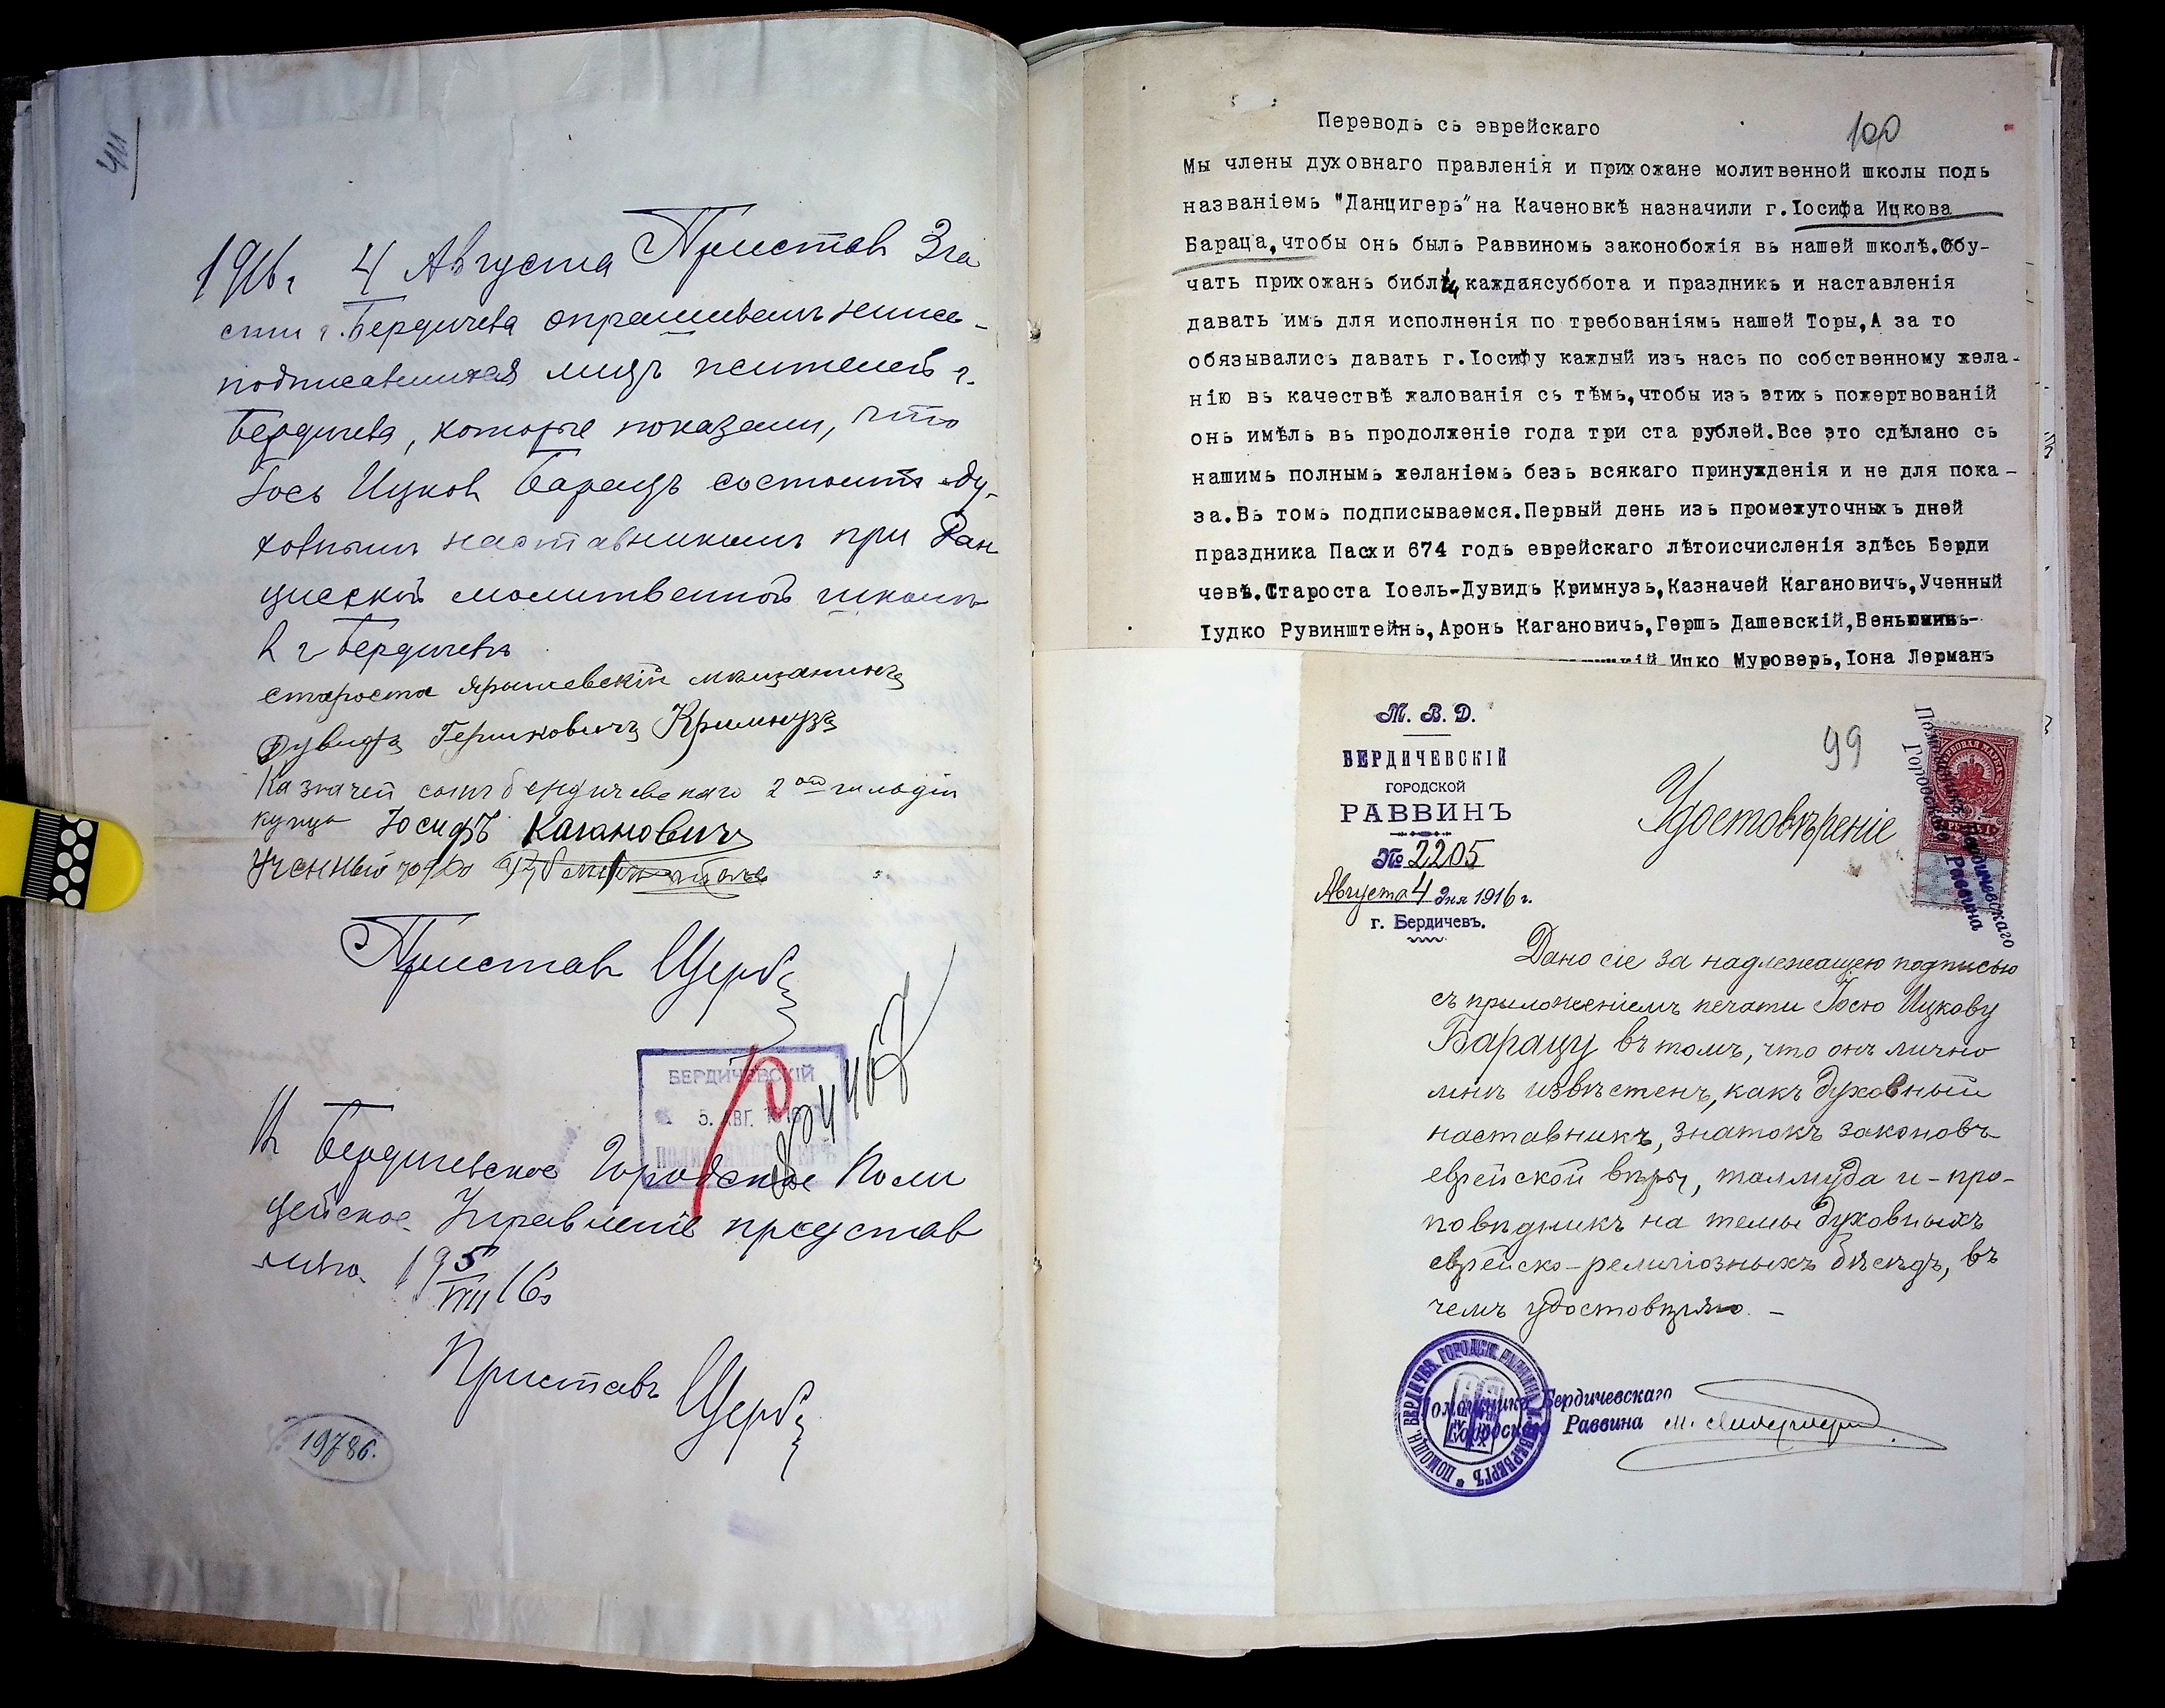 411
1916 г. 4 Августа Приставъ 3 ча
сти г. Бердичева опрашивалъ нижепо-
подписавшихся лицъ жителей г.
Бердичева, которые показали, что
Іось Ицков Барацъ состоитъ ду-
ховнымъ наставникомъ при Дан
цигской молитвенной школѣ
в г Бердичевѣ
староста Ярышевскій мѣщанинъ
Дувидъ Гершковичъ Кримнузъ
Казначей сынъ бердичевскаго 2 ой гильдіи
купца Іосифъ Кагановичъ
Ученный Юдко
Приставъ Щерб
БЕРДИЧЕВСКІЙ
5. АВГ. 1916
№ 24467
В Бердичевское Городское Поли
цейское Управленіе представ
лено 19 5/VIII 16 г
Приставъ Щерб
19786.
100
Переводъ съ еврейскаго
Мы члены духовнаго правленія и прихожане молитвенной школы подъ
названіемъ "Данцигеръ" на Каченовкѣ назначили г.Іосифа Ицкова
Бараца, чтобы онъ былъ Раввиномъ законобожія въ нашей школѣ.Обу-
чать прихожанъ библіи каждаясуббота и праздникъ и наставленія
давать имъ для исполненія по требованіямъ нашей Торы,А за то
обязывались давать г.Іосифу каждый изъ насъ по собственному жела-
нію въ качествѣ жалованія съ тѣмъ,чтобы изъ этихъ пожертвованій
онъ имѣлъ въ продолженіе года три ста рублей.Все это сдѣлано съ
нашимъ полнымъ желаніемъ безъ всякаго принужденія и не для пока-
за.Въ томъ подписываемся.Первый день изъ промежуточныхъ дней
праздника Пасхи 674 годъ еврейскаго лѣтоисчисленія здѣсь Берди
чевѣ.Староста Іоель-Дувидъ Кримнузъ,Казначей Кагановичъ,Ученный
Іудко Рувинштейнъ,Аронъ Кагановичъ,Гершъ Дашевскій,Беньюминъ-
Ицко Муроверъ,Іона Лерманъ
М. В. Д.
БЕРДИЧЕВСКІЙ
ГОРОДСКОЙ
РАВВИНЪ
№ 2205
Августа 4 дня 1916 г.
г. Бердичевъ.
99
Удостовѣреніе
Помощникъ Бердичевскаго
Городского Раввина
Дано сіе за надлежащею подписью
съ приложеніемъ печати Іосю Ицкову
Барацу въ томъ, что онъ лично
мнѣ извѣстенъ, какъ духовный
наставникъ, знатокъ законовъ
еврейской вѣры, талмуда и - про-
повѣдникъ на темы духовныхъ
еврейско-религіозныхъ бесѣдъ, въ
чемъ удостовѣряю. -
Помощникъ Бердичевскаго
Городского Раввина